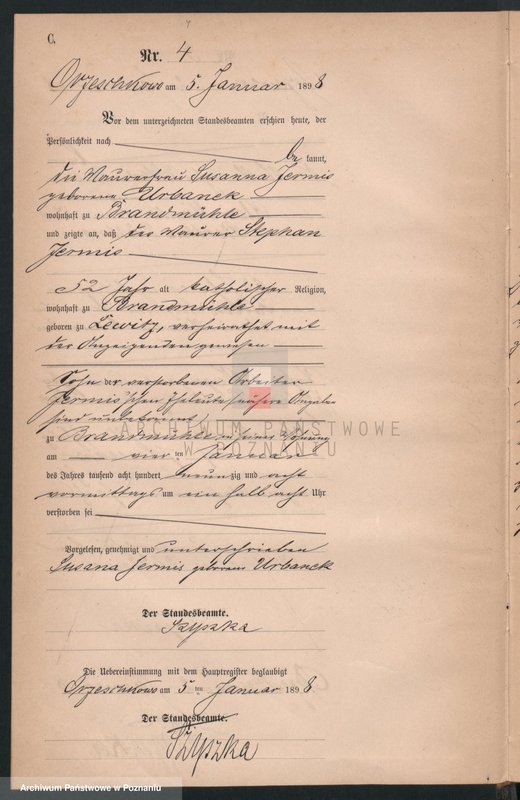 C.
Nr. 4
Orzeschkowo am 5. Januar 1898
Vor dem unterzeichneten Standesbeamten erschien heute, der
Persönlichkeit nach
be kannt,
die Maurerfrau Susanna Jermis
geborene Urbanek
wohnhaft zu Brandmühle
und zeigte an, daß der Maurer Stephan
Jermis
52 Jahr alt katholischer Religion,
wohnhaft zu Brandmühle
geboren zu Lewitz, verheirathet mit
der Anzeigenden gewesen
Sohn der verstorbenen Arbeiter
Jermis'schen Eheleute (nähere Angaben
sind unbekannt)
zu Brandmühle in seiner Wohnung
am vier ten Januar
des Jahres tausend acht hundert neunzig und acht
vormittags um ein halb acht Uhr
verstorben sei
Vorgelesen, genehmigt und unterschrieben
Susana Jermis geborene Urbanek
Der Standesbeamte.
Szyszka
Die Uebereinstimmung mit dem Hauptregister beglaubigt
Orzeschkowo am 5 ten Januar 1898
Der Standesbeamte.
Szyszka
ARCHIWUM PAŃSTWOWE
W POZNANIU
Archiwum Państwowe w Poznaniu